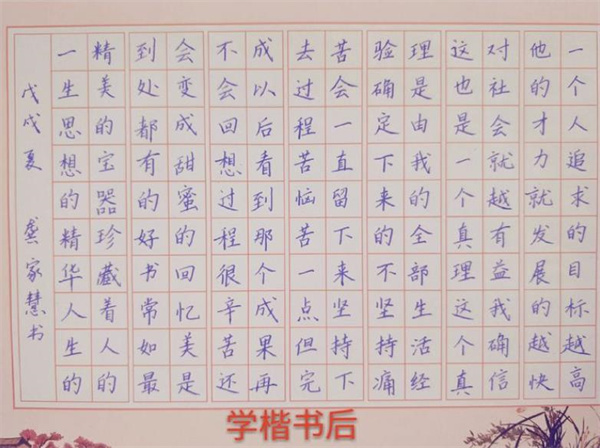 一个人追求的目标越高
他的才力就发展的越快
对社会就越有益我确信
这也是一个真理这个真
理是由我的全部生活经
验确定下来的不坚持痛
苦会一直留下来坚持下
去过程苦恼苦一点但完
成以后看到那个成果再
不会回想过程很辛苦还
会变成甜蜜的回忆美是
到处都有的好书常如最
精美的宝器珍藏着人的
一生思想的精华人生的
戊戌夏 龚家慧书
学楷书后